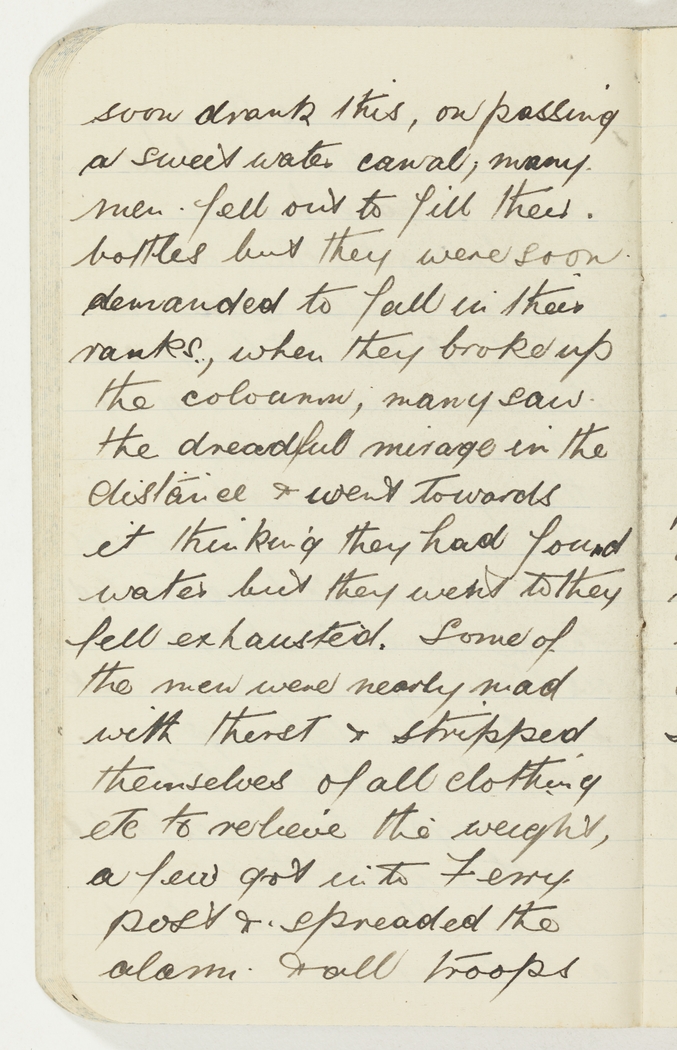 soon drank this, on passing
a sweet water canal, many
men. fell out to fill their.
bottles but they were soon.
demanded to fall in their
ranks., when they broke up
the colounm, many saw.
the dreadful mirage in the
distance & went towards
it thinking they had found
water but they went to they
fell exhausted. Some of
the men were nearly mad
with therst & stripped
themselves of all clothing
etc to relieve the weight,
a few got into Ferry
post &. spreaded the
alarm. & all troops